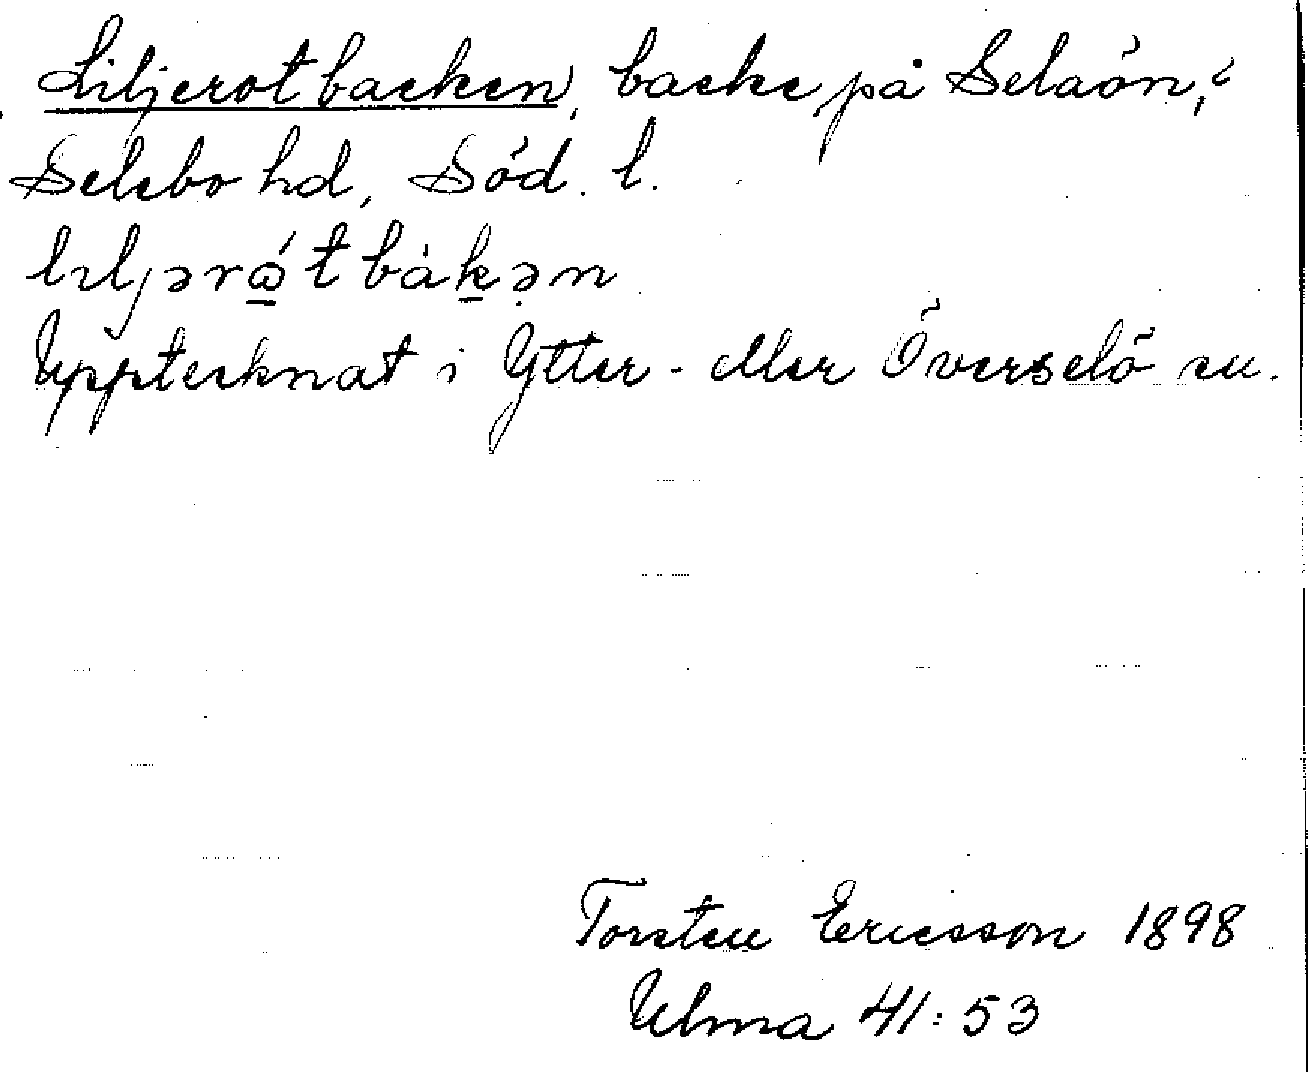 Liljerotbacken, backe på Selaön, i
Selebo hd, Söd. l.
lıljərώtbàkən
Upptecknat i Ytter- eller Överselö sn.
Torsten Ericsson 1898
Ulma 41:53